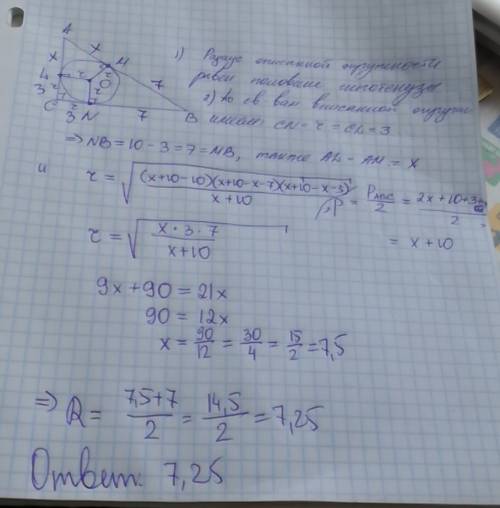 A
x
x
M
4
r
r
O
7
3
r
r
C
3
N
7
B
1) Радиус описанной окружности
равен половине гипотенузы
2) по св-вам вписанной окружн
имеем: CN = r = CL = 3
⇒ NB = 10 - 3 = 7 = MB, также AL = AM = x
и
r = √((x+10-10)(x+10-x-7)(x+10-x-3)/(x+10))
p = P_ABC/2 = (2x+10+3+
)/2
= x + 10
r = √(x·3·7/(x+10))
9x + 90 = 21x
90 = 12x
x = 90/12 = 30/4 = 15/2 = 7,5
⇒ R = (7,5+7)/2 = 14,5/2 = 7,25
Ответ: 7,25